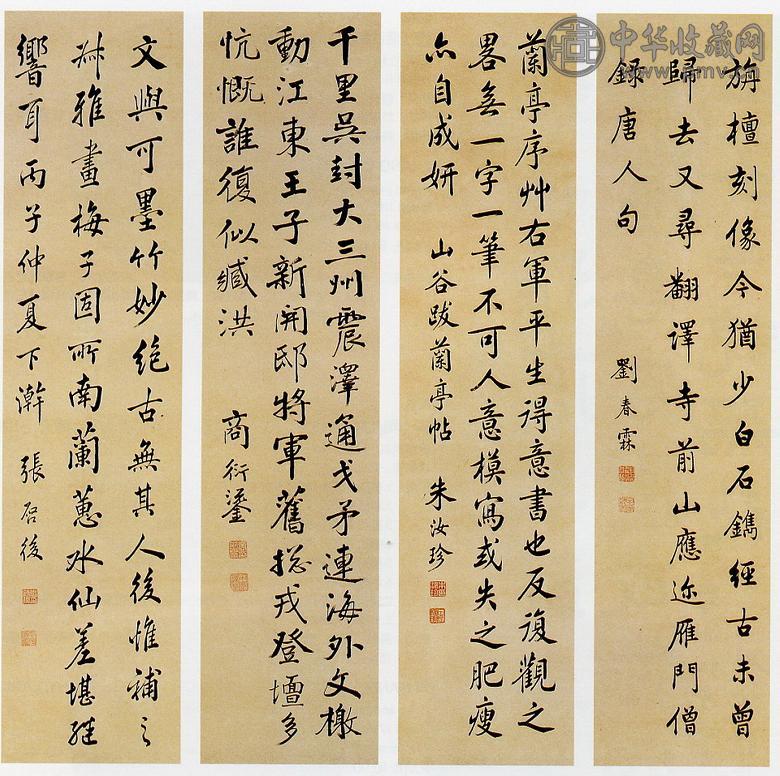 中华收藏网
旃檀刻像今猶少白石鐫經古未曾
歸去又尋翻譯寺前山應迩雁門僧
録唐人句
劉春霖
蘭亭序艸右軍平生得意書也反復觀之
畧無一字一筆不可人意模寫或失之肥瘦
亦自成妍 山谷跋蘭亭帖
朱汝珍
千里吳封大三州震澤通戈矛連海外文檄
動江東王子新開邸將軍舊総戎登壇多
忼慨誰復似臧洪
商衍鎏
文與可墨竹妙絶古無其人後惟補之
艸雅畫梅子固所南蘭蕙水仙差堪継
響耳丙子仲夏下澣 張啓後